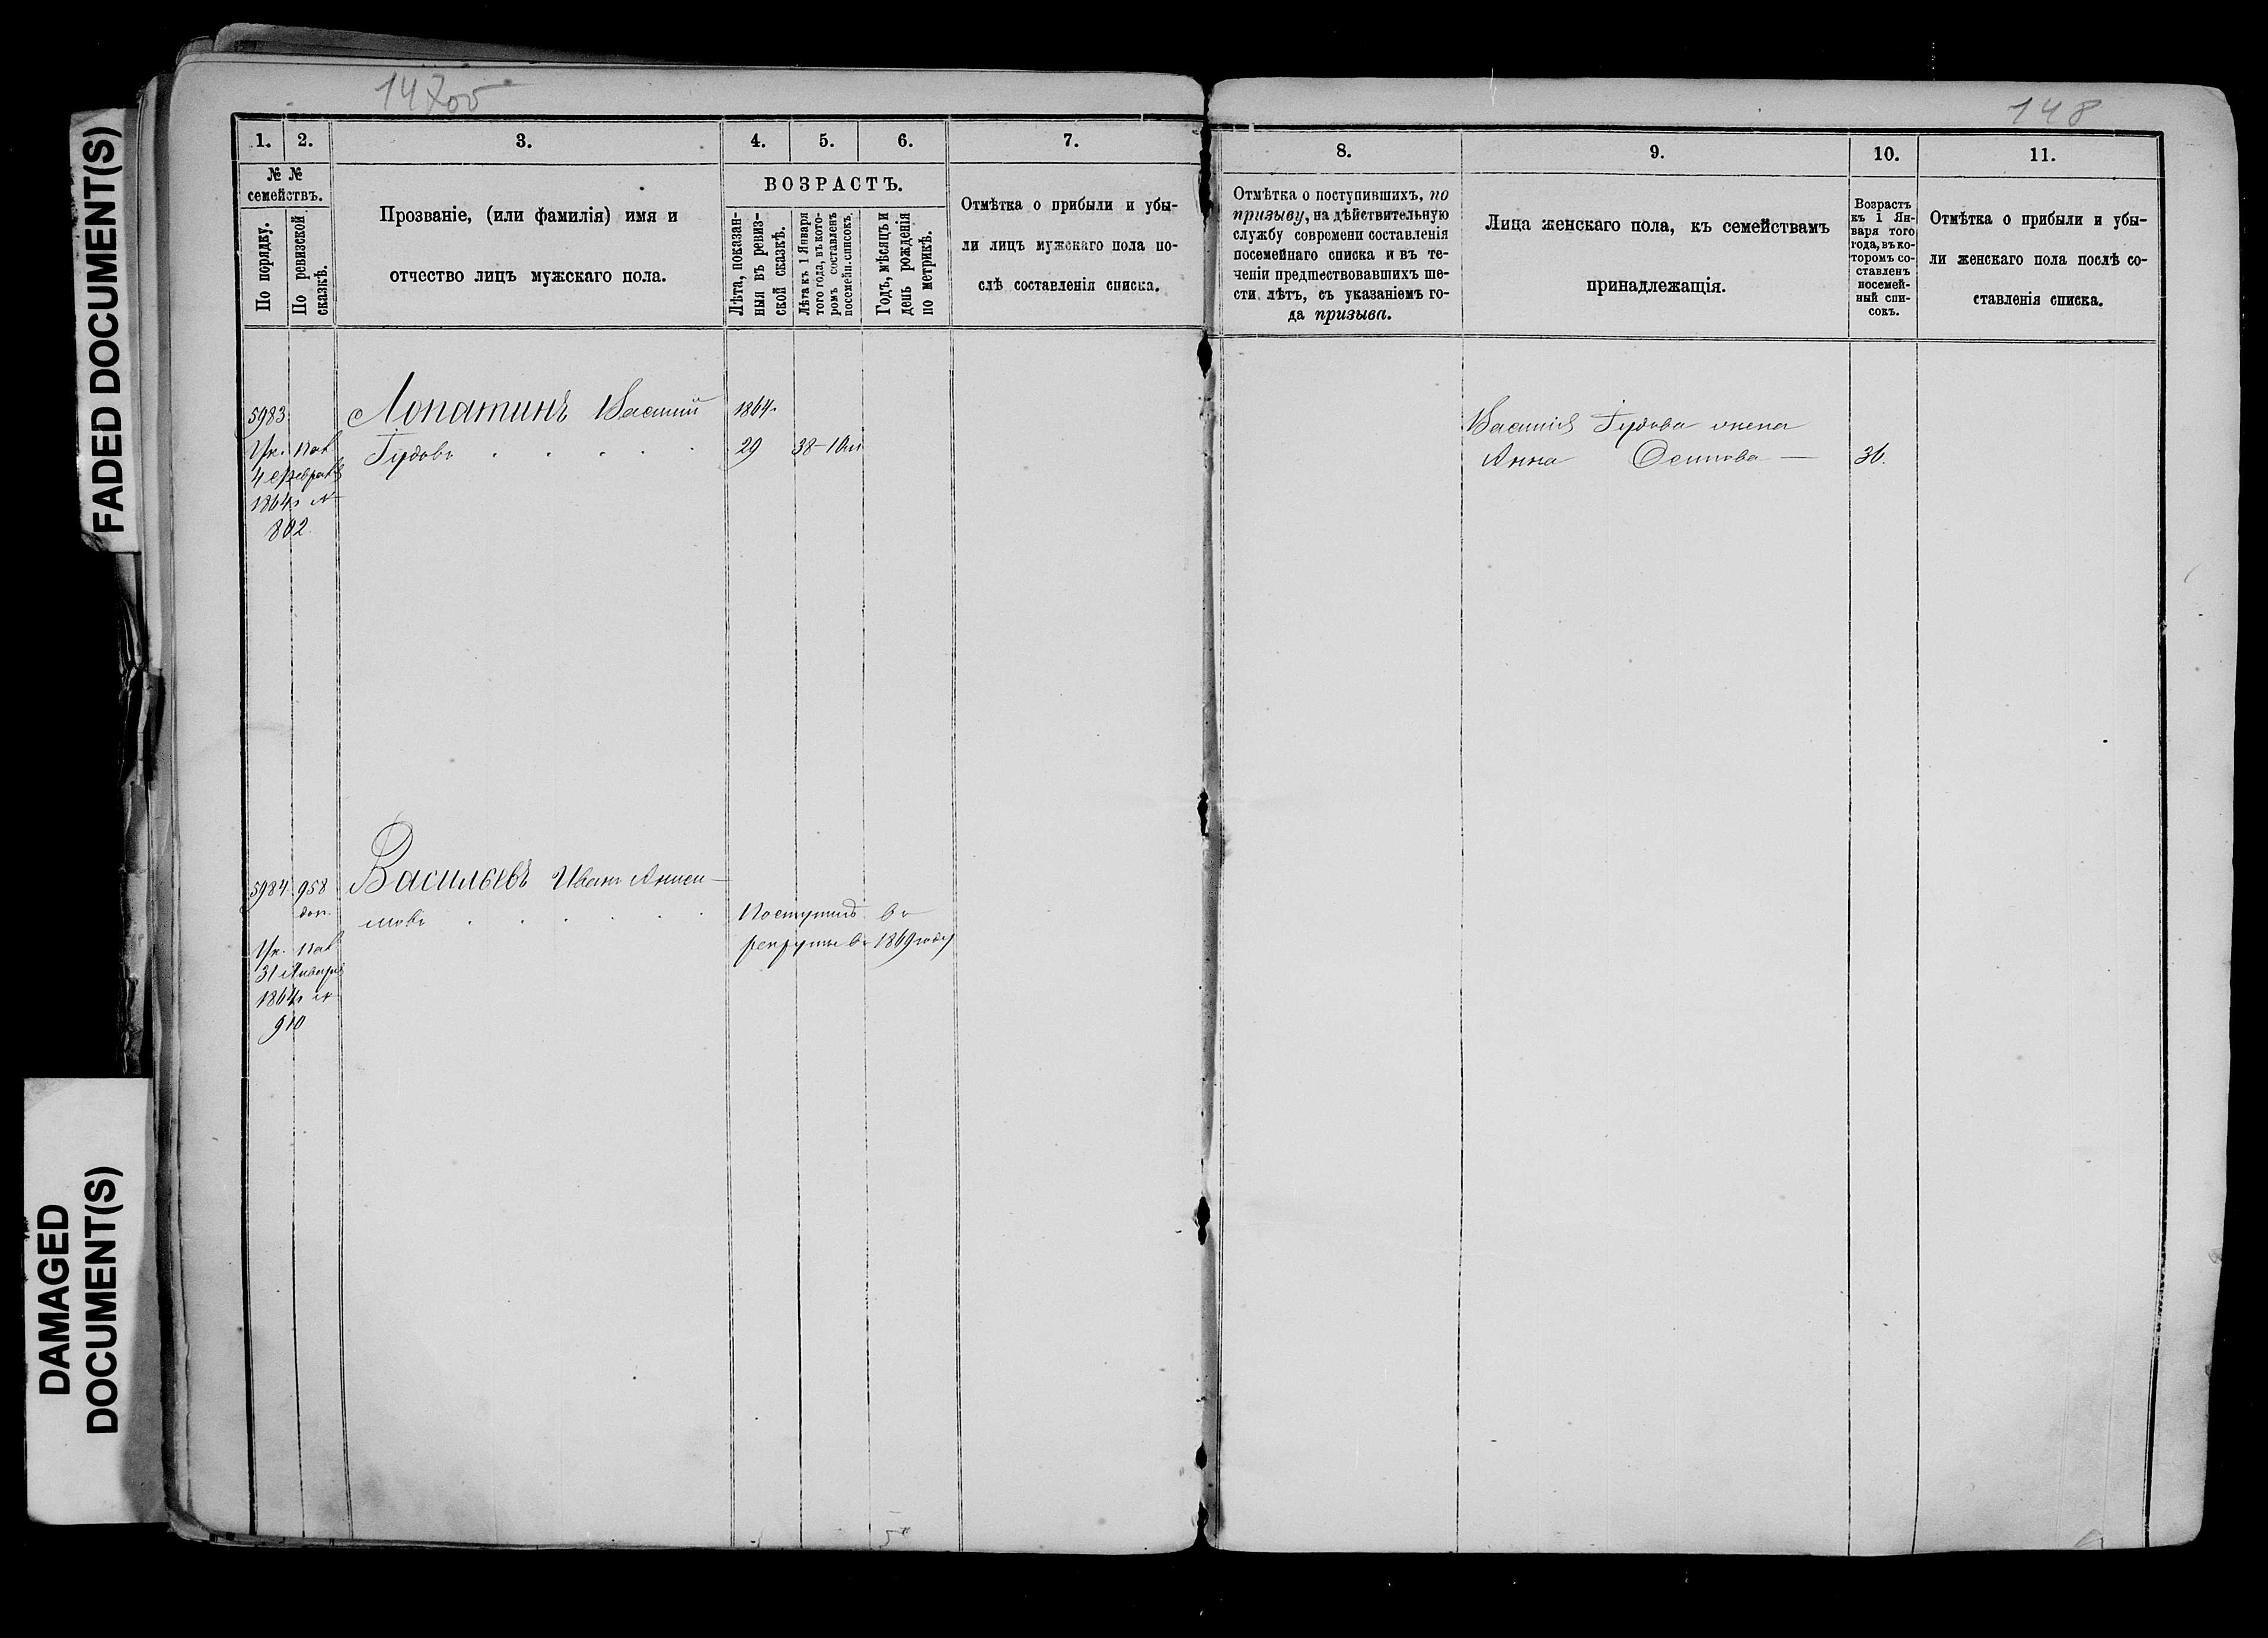 FADED DOCUMENT(S)
DAMAGED
DOCUMENT(S)
148
1.
2.
3.
4.
5.
6.
7.
№ №
семействъ.
По порядку.
По ревизской
сказкѣ.
Прозваніе, (или фамилія) имя и
отчество лицъ мужскаго пола.
ВОЗРАСТЪ.
Лѣта, показан-
ныя въ ревиз-
ской сказкѣ.
Лѣта къ 1 Января
того года, въ кото-
ромъ составленъ
посемейн. списокъ.
Годъ, мѣсяцъ и
день рожденія
по метрикѣ.
Отмѣтка о прибыли и убы-
ли лицъ мужскаго пола по-
слѣ составленія списка.
8.
9.
10.
11.
Отмѣтка о поступившихъ, по
призыву, на дѣйствительную
службу со времени составленія
посемейнаго списка и въ те-
ченіи предшествовавшихъ ше-
сти лѣтъ, съ указаніемъ го-
да призыва.
Лица женскаго пола, къ семействамъ
принадлежащія.
Возрастъ
къ 1 Ян-
варя того
года, въ ко-
торомъ со-
ставленъ
посемей-
ный спи-
сокъ.
Отмѣтка о прибыли и убы-
ли женскаго пола послѣ со-
ставленія списка.
5983
Ук. Пал
4 Февраля
1864 г №
802.
Лопатинъ Василий
1864 г
29 38
Василія жена
Анна Осипова — 36.
5984 958
доп.
Ук. Пал
31 Января
1864 г №
910
Васильевъ Иванъ Аниси-
мовъ
Поступилъ въ
рекруты въ 1869 году